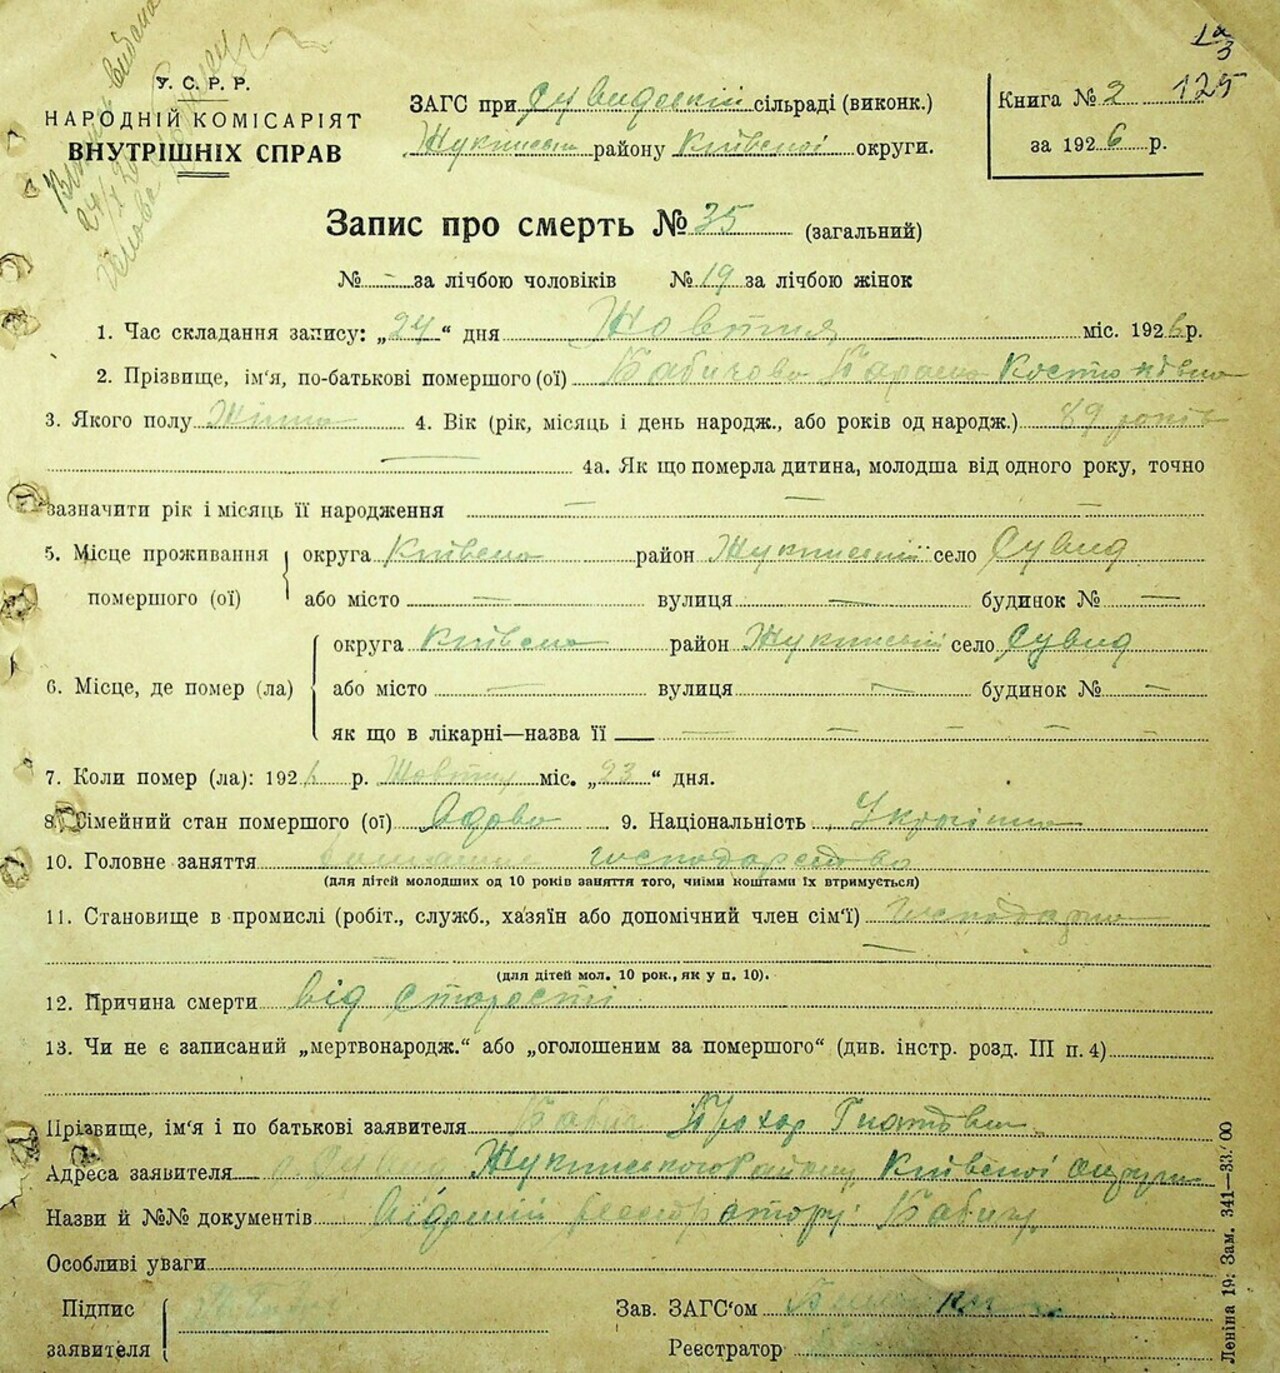 1а
3
У. С. Р. Р.
НАРОДНІЙ КОМІСАРІЯТ
ВНУТРІШНІХ СПРАВ
ЗАГС при Сувидській сільраді (виконк.)
Жукинськ району Київської округи.
Книга № 2 125
за 1926 р.
Запис про смерть № 35 (загальний)
№ – за лічбою чоловіків № 19 за лічбою жінок
1. Час складання запису: „24“ дня Жовтня міс. 1926 р.
2. Прізвище, ім‘я, по-батькові помершого (ої)
3. Якого полу Жіноч 4. Вік (рік, місяць і день народж., або років од народж.) 89 років
4а. Як що померла дитина, молодша від одного року, точно
зазначити рік і місяць її народження
5. Місце проживання округа Київська район Жукинський село Сувид
помершого (ої) або місто — вулиця — будинок № —
6. Місце, де помер (ла) округа Київська район Жукинський село Сувид
або місто — вулиця — будинок № —
як що в лікарні—назва її — — — — — —
7. Коли помер (ла): 1926 р. Жовтня міс. „23“ дня.
8. Сімейний стан помершого (ої) Вдова 9. Національність Українка
10. Головне заняття господарство
(для дітей молодших од 10 років заняття того, чиїми коштами їх втримується)
11. Становище в промислі (робіт., служб., хазяїн або допомічний член сім‘ї) Господарка
(для дітей мол. 10 рок., як у п. 10).
12. Причина смерти від старости
13. Чи не є записаний „мертвонародж.“ або „оголошеним за помершого“ (див. інстр. розд. III п. 4)
Прізвище, ім‘я і по батькові заявителя Бабич Прохор Гнатович
Адреса заявителя с. Сувид Жукинського району Київської округи
Назви й №№ документів Відомий реєстратору Бабичу
Особливі уваги
Підпис заявителя
Зав. ЗАГС‘ом
Реєстратор
Леніна 19: Зам. 341—33.000